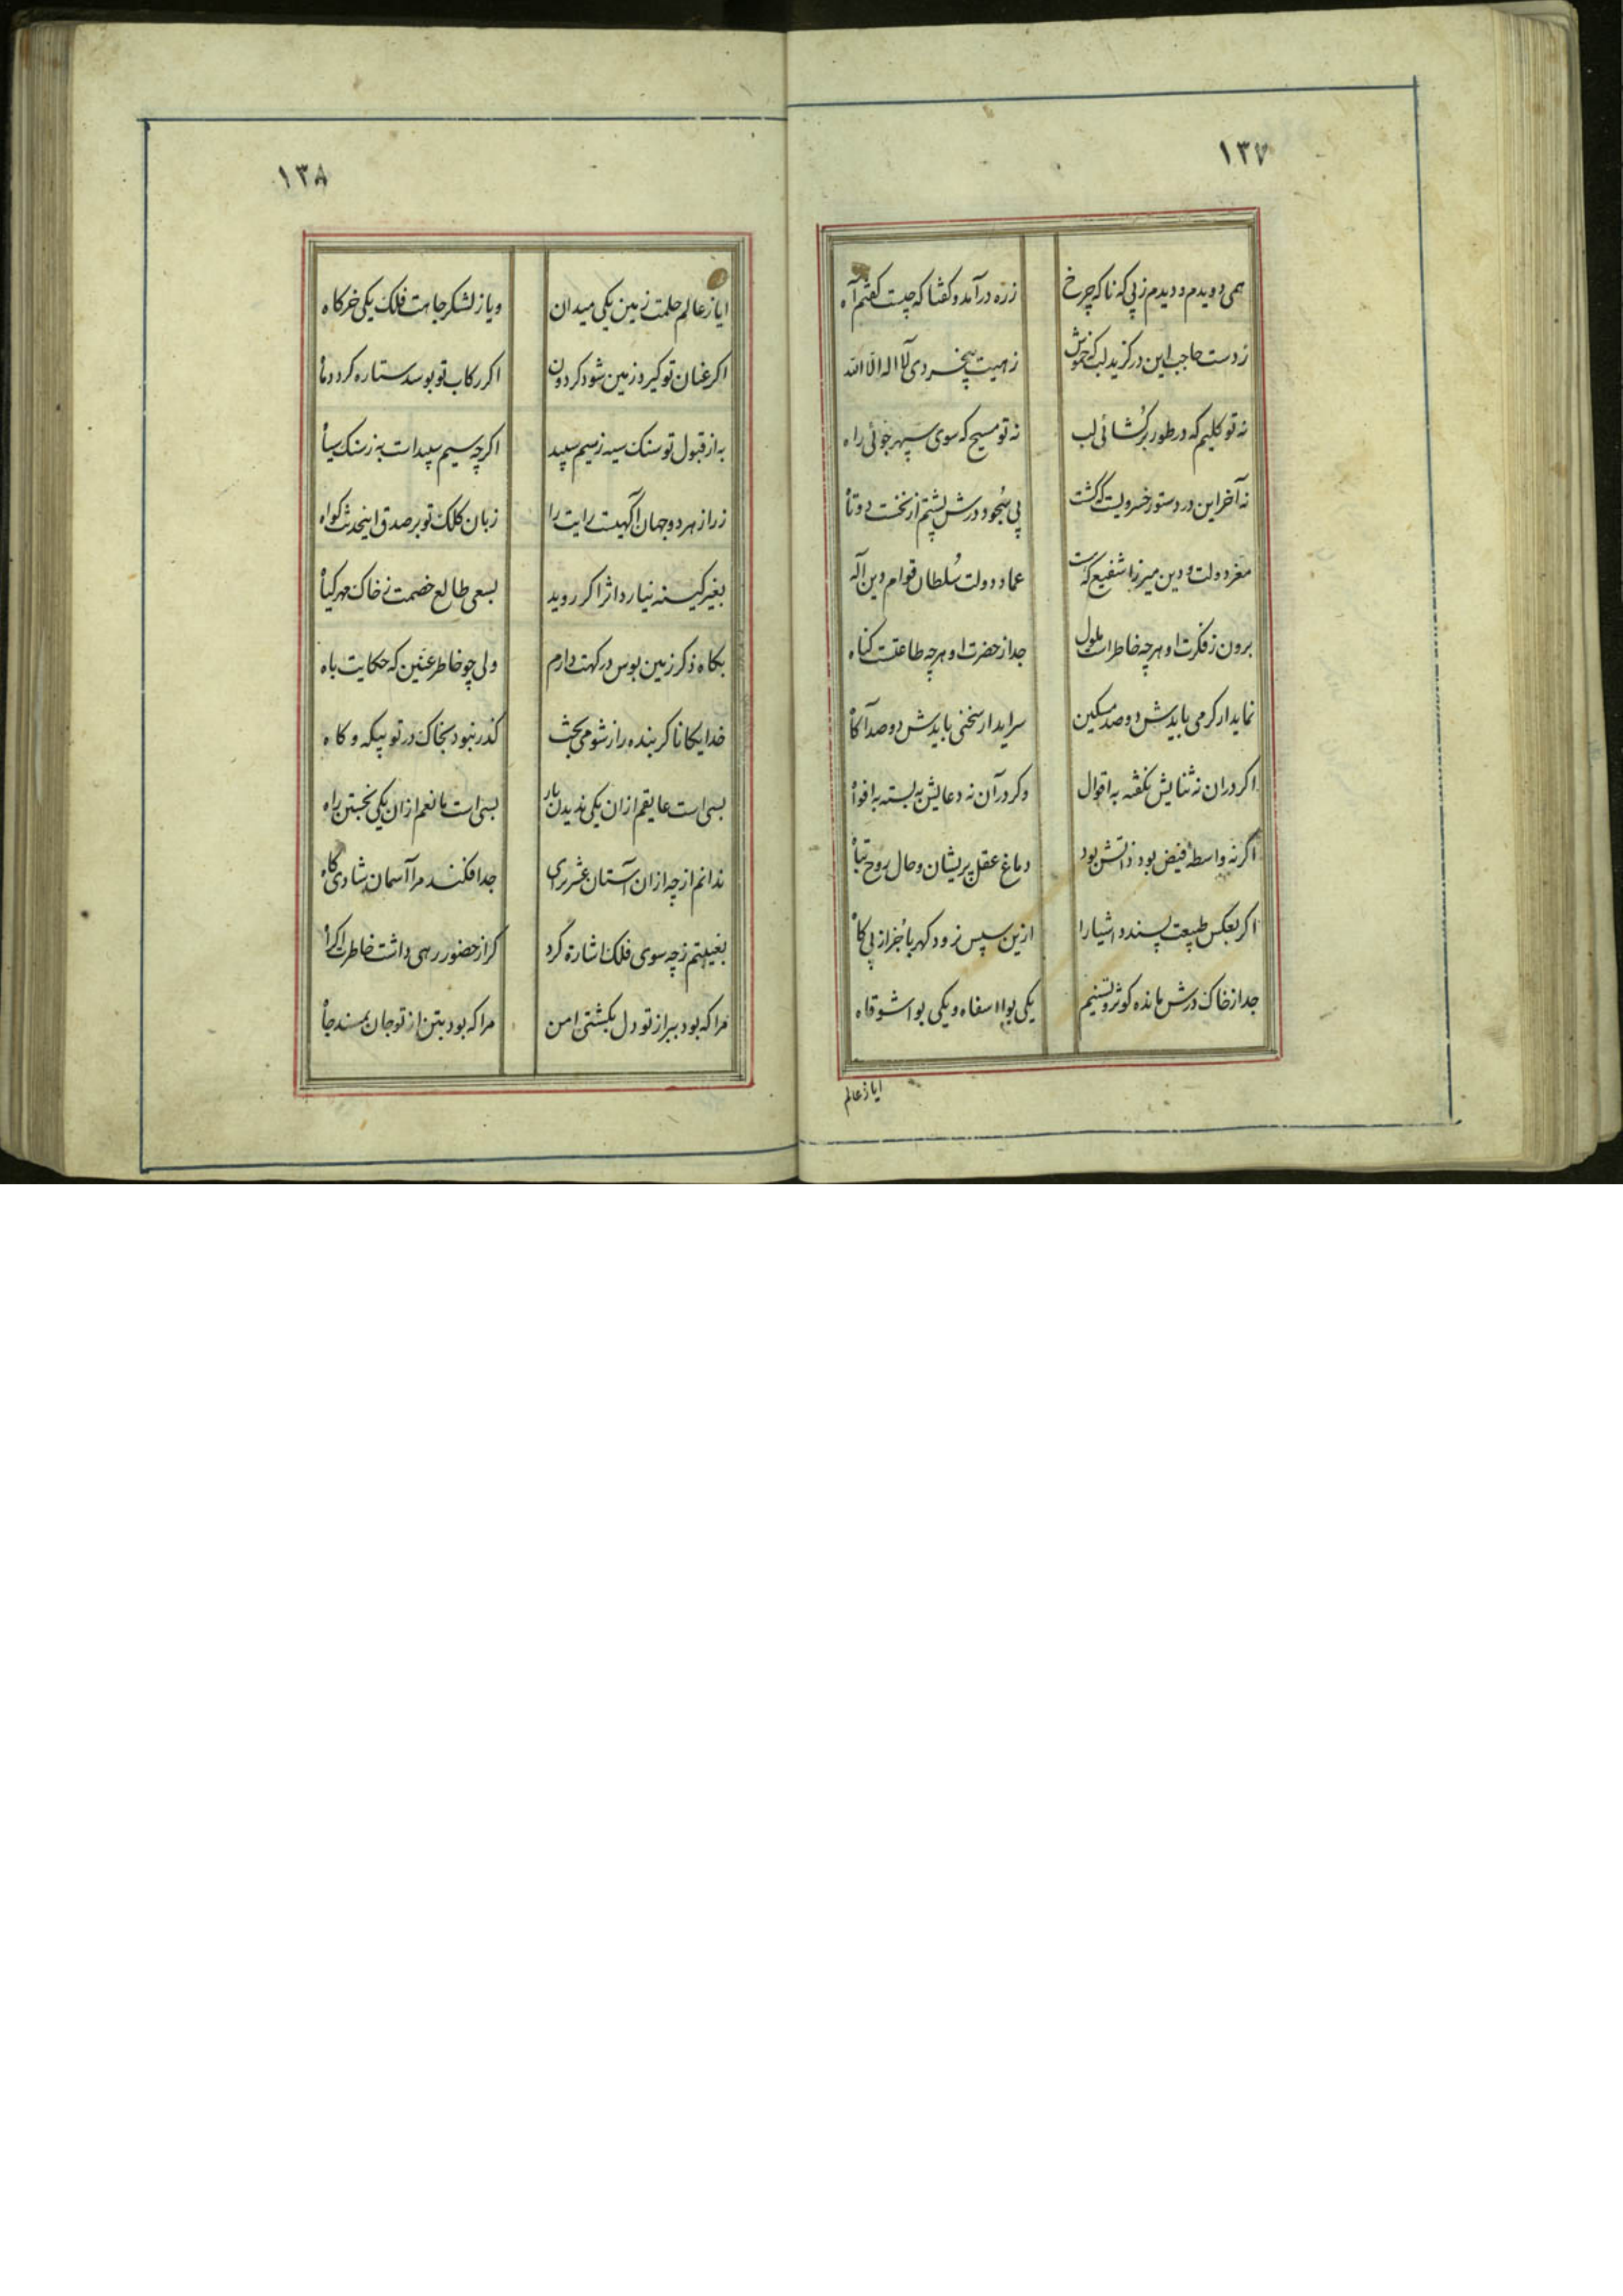 ١٣٧
همی دویدم و دیدم ز پی که ناکه چرخ
ز ره درآمد و کفتا که چیست کفتم آه
ز دست حاجب این در کزید لب که خموش
زهیت بیخردی لا اله الا الله
نه تو کلیم که در طور برکشائی لب
نه تو مسیح که سوی سپهر جوئی راه
نه آخر این در دستور خسرویست که کشت
پی سجود درش پشتم از نخست دوتاه
مغر دولت و دین میرزا شفیع که هست
عماد دولت سلطان قوام دین آله
برون ز فکرت او هرچه خاطرات ملول
جدا ز حضرت او هرچه طاعتست کناه
نماید ار کرمی بایدش دو صد مسکین
سراید ار سخنی بایدش دو صد آکاه
اکر در ان نه ثنایش نکفته به اقوال
وکر در آن نه دعایش به بسته به افواه
اکر نه واسطهٔ فیض بود ذاتش بود
دماغ عقل پریشان و حال روح تباه
اکر بعکس طبیعت پسندد اشیا را
ازین سپس نرود کهربا جز از پی کاه
جدا ز خاک درش مانده کوثر و تسنیم
یکی بواا سفاه و یکی بوا شوقاه
ایا ز عالم
١٣٨
ایا ز عالم حلمت زمین یکی میدان
ویا ز لشکر جاهت فلک یکی خرکاه
اکر عنان تو کیرد زمین شود کردون
اکر رکاب تو بوسد ستاره کردد ماه
به از قبول تو سنک سیه ز سیم سپید
اکرچه سیم سپید است به ز سنک سیاه
ز راز هر دو جهان آکهیست رایت را
زبان کلک تو بر صدق اینحدیث کواه
بغیر کینه نیارد اثر اکر روید
بسعی طالع خصمت ز خاک مهرکیاه
بکاه ذکر زمین بوس درکهت دارم
ولی چو خاطر عنین که حکایت باه
خدایکانا کر بنده را ز شومی بخت
کذر نبود بخاک در تو بیکه و کاه
بسی است عایقم از ان یکی ندیدن بار
بسی است مانعم از ان یکی نجستن راه
ندانم از چه از ان آستان عشرت زای
جدا فکند مرا آسمان شادی کاه
بغیبتم ز چه سوی فلک اشارة کرد
کر از حضور رهی داشت خاطرت اکراه
مرا که بود ببر از تو دل بکشتی امن
مرا که بود بتن از تو جان بمسند جاه